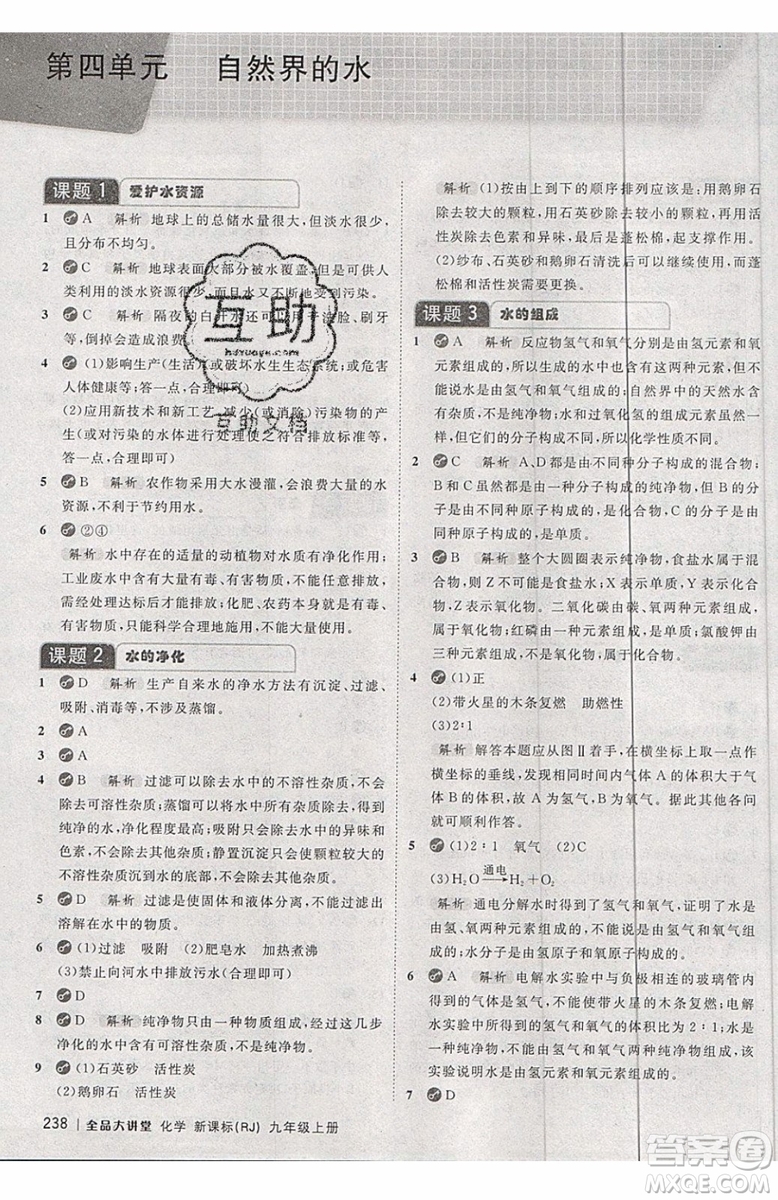 第四单元 自然界的水
课题1 爱护水资源
1 A 解析 地球上的总储水量很大,但淡水很少,
且分布不均匀。
2 C 解析 地球表面大部分被水覆盖,但可供人
类利用的淡水资源很少,而且水又不断受到污染。
3 C 解析 隔夜的白开水还可以用于洗脸、刷牙
等,倒掉会造成浪费
4 (1)影响生产(生活)或破坏水生生态系统;或
人体健康等;答一点,合理即可)
(2)应用新技术和新工艺,减少(或消除)污染物的产
生(或对污染的水体进行处理使之符合排放标准
等;答一点,合理即可)
5 B 解析 农作物采用大水漫灌,会浪费大量的水
资源,不利于节约用水。
6 ②④
解析 水中存在的适量的动植物对水质有净化作用;
工业废水中含有大量的有毒、有害物质,不能直接排放,
需经过处理达标后排放;化肥、农药本身就是有毒、
有害物质,只能科学合理地施用,不能大量使用。
课题2 水的净化
1 D 解析 生产自来水的净水方法有沉淀、过滤、
吸附、消毒等,不涉及蒸馏。
2 A
3 A
4 B 解析 过滤可以除去水中的不溶性杂质,但
不能除去可溶性杂质;蒸馏可以除去可溶性杂质,得到
纯净的水,净化程度最高;吸附可以除去水中的异味和
色素,不能除去可溶性杂质;静置沉淀只能使颗粒较大的
不溶性杂质沉到水的底部,不能除去可溶性杂质。
5 D 解析 过滤是使固体和液体分离,不能过滤出
溶解在水中的物质。
6 (1)过滤 吸附 (2)肥皂水 加热煮沸
(3)禁止向河水中排放污水(合理即可)
7 D
8 D 解析 纯净物只由一种物质组成,经过这几步
净化的水中仍含有可溶性杂质,不是纯净物。
9 (1)石英砂 活性炭
(2)鹅卵石 活性炭
238 全品大讲堂 化学 新课标(RJ) 九年级上册
解析 (1)按由上到下的顺序排列应是:用鹅卵石
除去较大的颗粒,用石英砂除去较小的颗粒,用活
性炭除去色素和异味,最后是蓬松棉,防止水流过急。
(2)纱布、石英砂和鹅卵石清洗后可以继续使用,而蓬
松棉和活性炭需要更换。
课题3 水的组成
1 A 解析 反应物氢气和氧气分别是由氢元素和氧
元素组成的,所以生成的水中也一定含有氢元素和氧
元素,但是水不是由氢气和氧气组成的;自然界中的天然水含
有杂质,不是纯净物;水和过氧化氢的组成元素虽然
相同,但分子构成不同,所以化学性质不同。
2 C 解析 A、D都是由不同种分子构成的混合物,
B、C都是由一种分子构成的纯净物,其中B是由不同
种元素组成的纯净物,是化合物;C是由同种元素组
成的纯净物,是单质。
3 B 解析 整个大圆圈表示纯净物,食盐水属于混
合物,则Z不可能是食盐水;X表示单质,Y表示化
合物,Z表示氧化物。二氧化碳由碳、氧两种元素组成,
属于氧化物;红磷由一种元素组成,是单质;氯酸钾由三
种元素组成,不属于氧化物。
4 (1)正
(2)带火星的木条复燃 助燃性
(3)2∶1
解析 解答本题应从图Ⅱ着手,在横坐标上取一点作
横坐标的垂线,发现相同时间内气体A的体积大于气
体B的体积,故A是氢气,B是氧气,其余问题就
可顺利作答。
5 (1)2∶1 氧气 (2)C
(3)H₂O 通电→ H₂+O₂
解析 通电分解水时得到了氢气和氧气,证明了水是
由氢、氧两种元素组成的。水分子由氢原子和氧原子
构成的;水分子是由氢原子和氧原子构成的。
6 A 解析 电解水实验中与负极相连的玻璃管内
得到的气体是氢气,不能使带火星的木条复燃;电解
水实验中所得到的氢气和氧气的体积比为2∶1;水
是由氢元素和氧元素两种元素组成的纯净物,属于
化合物。
7 D
互助
hdzuoye.com
互助文档
答案圈
MXQE.COM